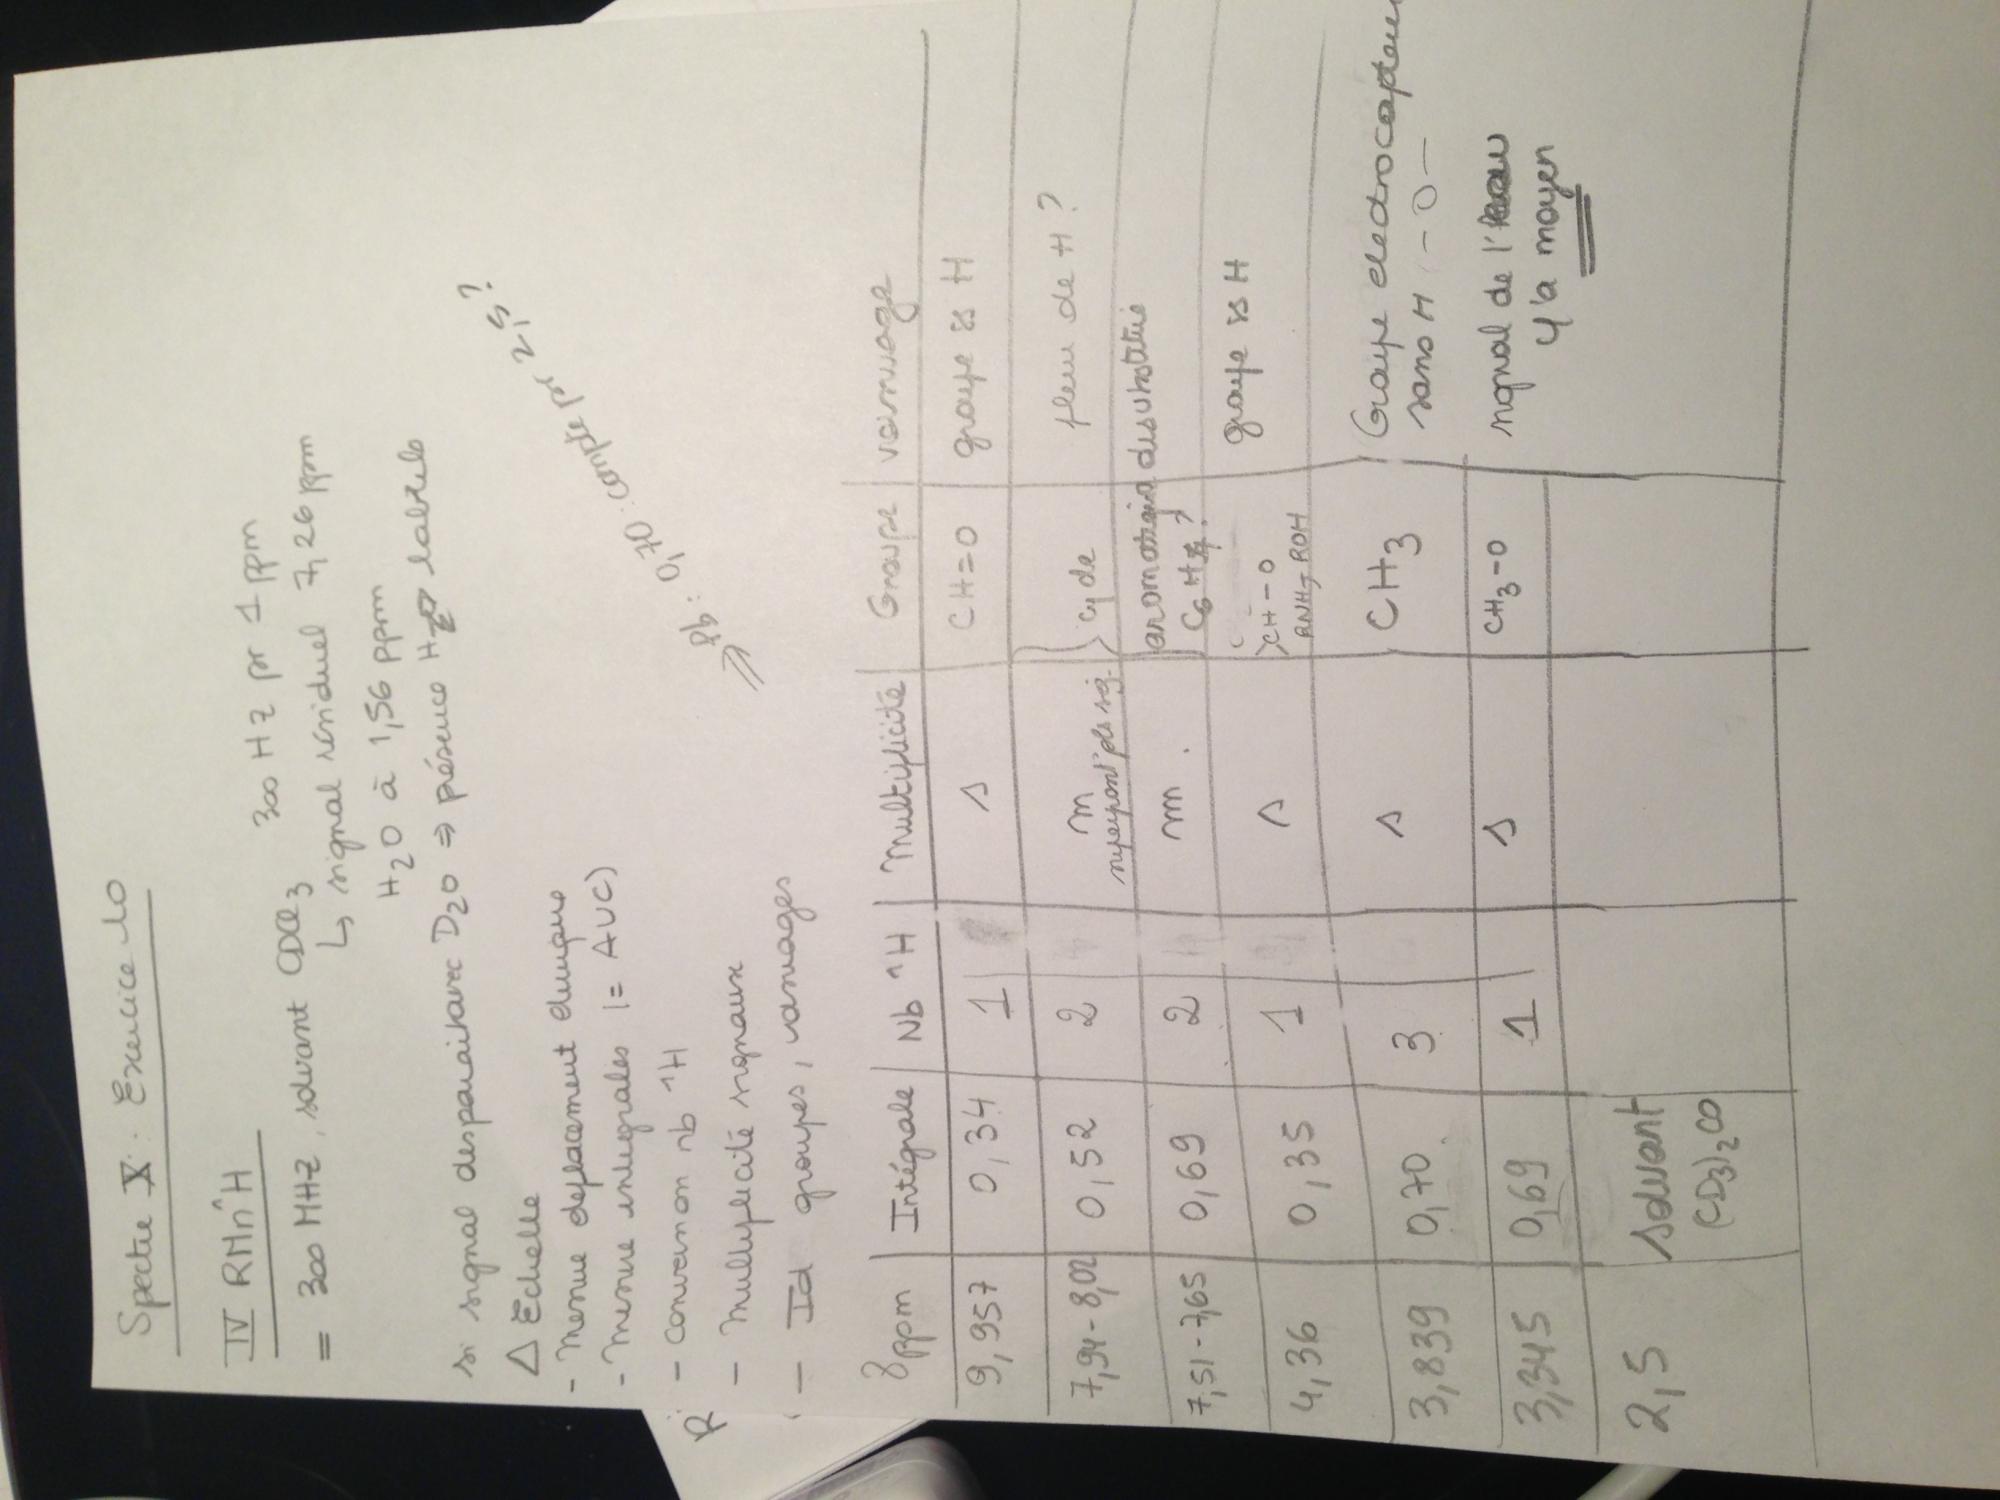 Spectre X : Exercice 10
IV RMn ^1H
= 300 MHz, solvant CDCl3 300 Hz pr 1 ppm
↳ signal résiduel 7,26 ppm
H2O à 1,56 ppm
si signal disparait avec D2O ⇒ présence H labiles
Δ Echelle
- Mesure deplacement chimique
- Mesure integrales (= AUC)
- Conversion nb ^1H
- Multiplicité signaux
- Id groupes, voisinages
⇒ Pb : 0,70 : compte pr 2,5 ?
δ ppm | Intégrale | Nb ^1H | Multiplicité | Groupe | voisinage
9,957 | 0,34 | 1 | s | CH=O | groupe ss H
7,94-8,02 | 0,52 | 2 | m | cycle | plein de H ?
7,51-7,65 | 0,69 | 2 | m | aromatique disubstitué
C6H4 ?
4,36 | 0,35 | 1 | s | >CH-O | groupe ss H
RNH2 ROH
3,839 | 0,70 | 3 | s | CH3 | Groupe electrocapteur
sans H -O-
3,345 | 0,69 | 1 | s | CH3-O | signal de l'eau
y'a moyen
2,5 | solvant
(CD3)2CO